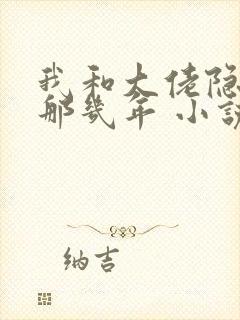 我和大佬隐
那几年 小说
纳吉